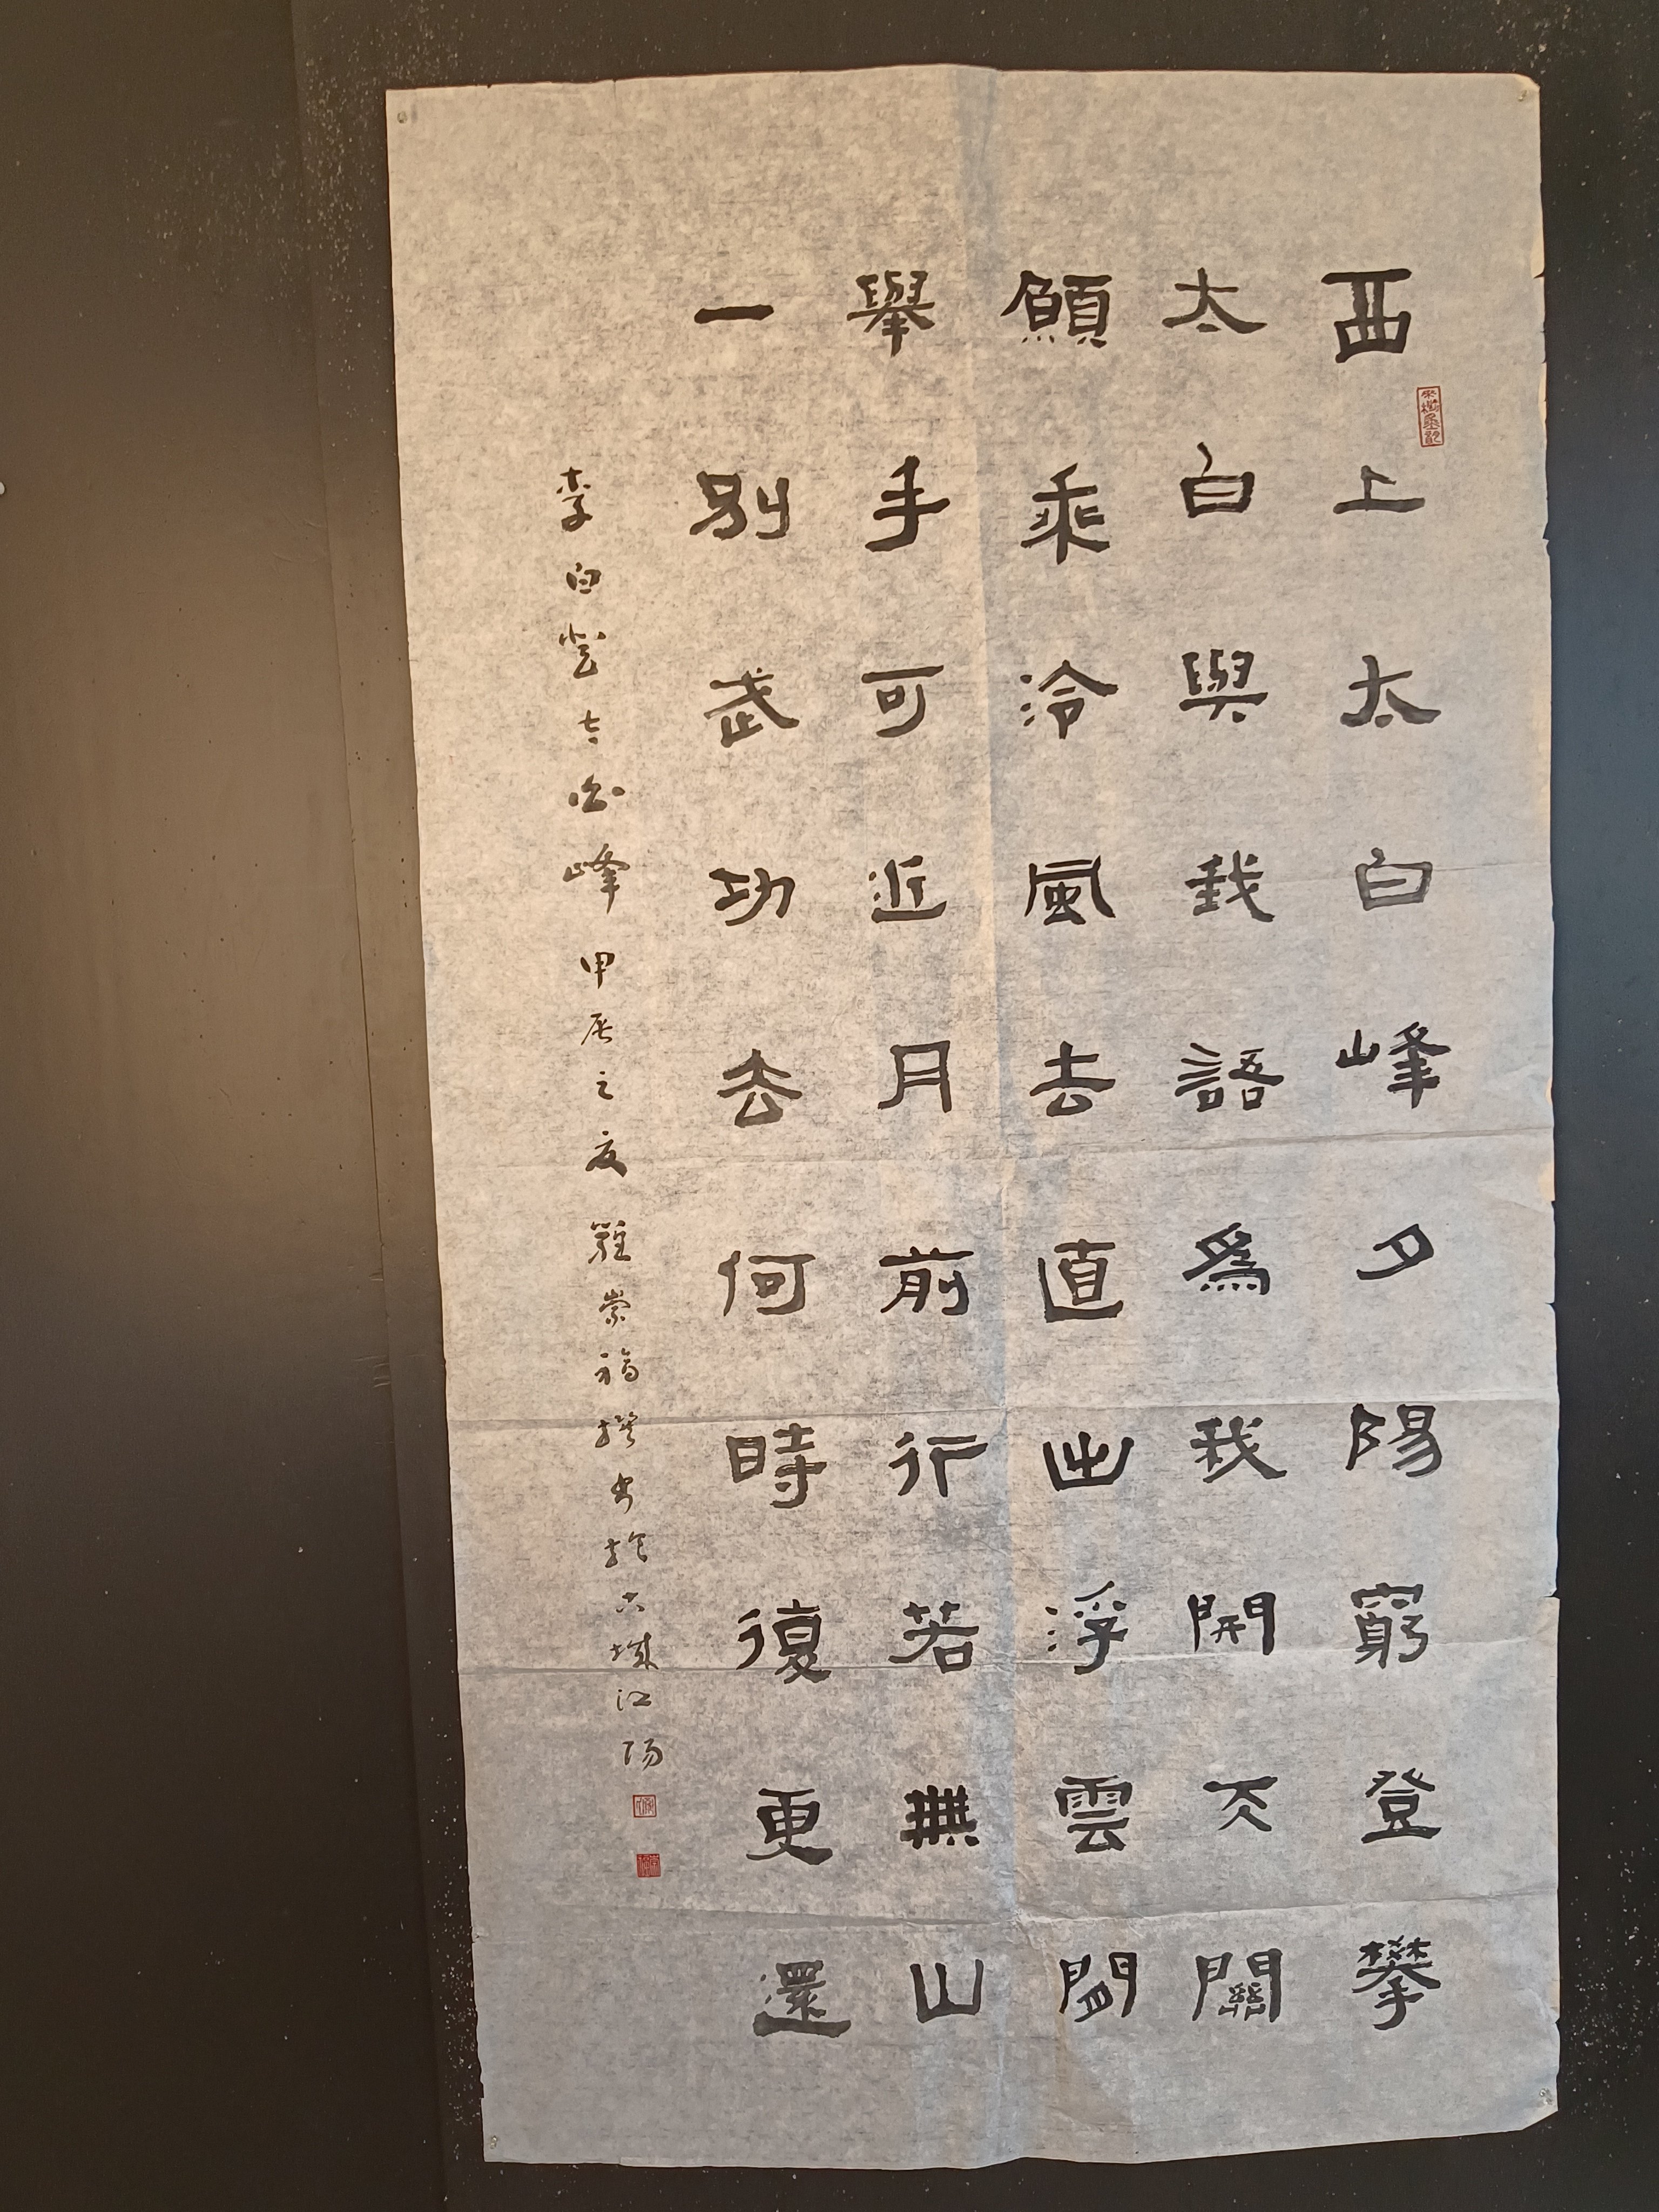 西上太白峰夕陽窮登攀
太白與我語爲我開天關
願乘泠風去直出浮雲間
舉手可近月前行若無山
一別武功去何時復更還
李白登太白峰甲辰之夏羅崇福書於古城江陽